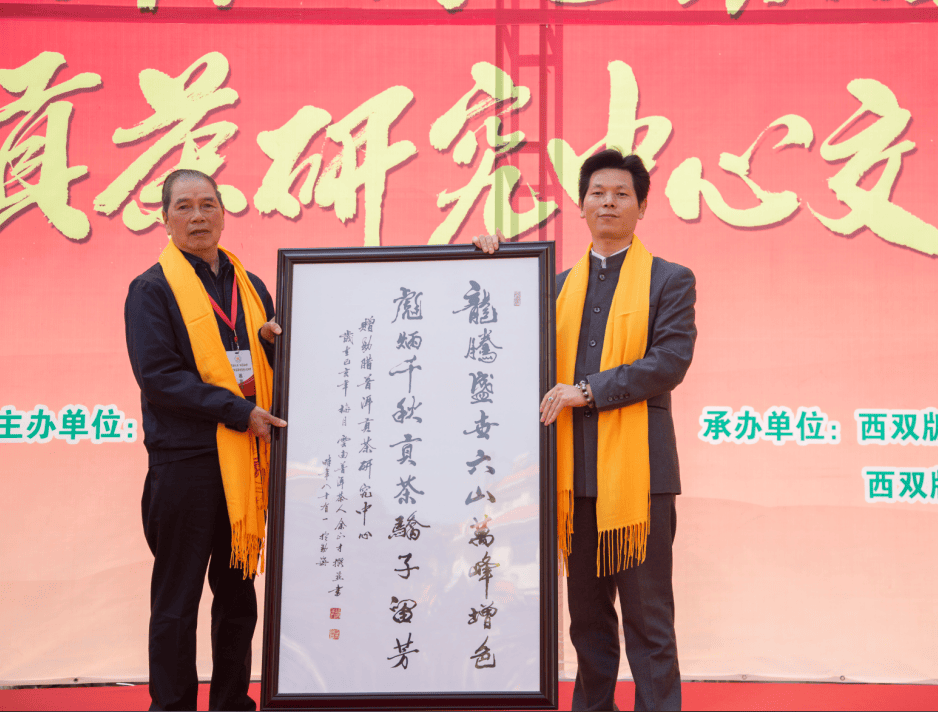 貢茶研究中心交
主办单位:
承办单位: 西双版
西双版
龍騰盛世六山萬峰增色
彪炳千秋貢茶驕子留芳
贈勐腊普洱貢茶研究中心
歲書白云年梅月 雲南普洱茶人余不才撰并書
時年八十有一於勐海